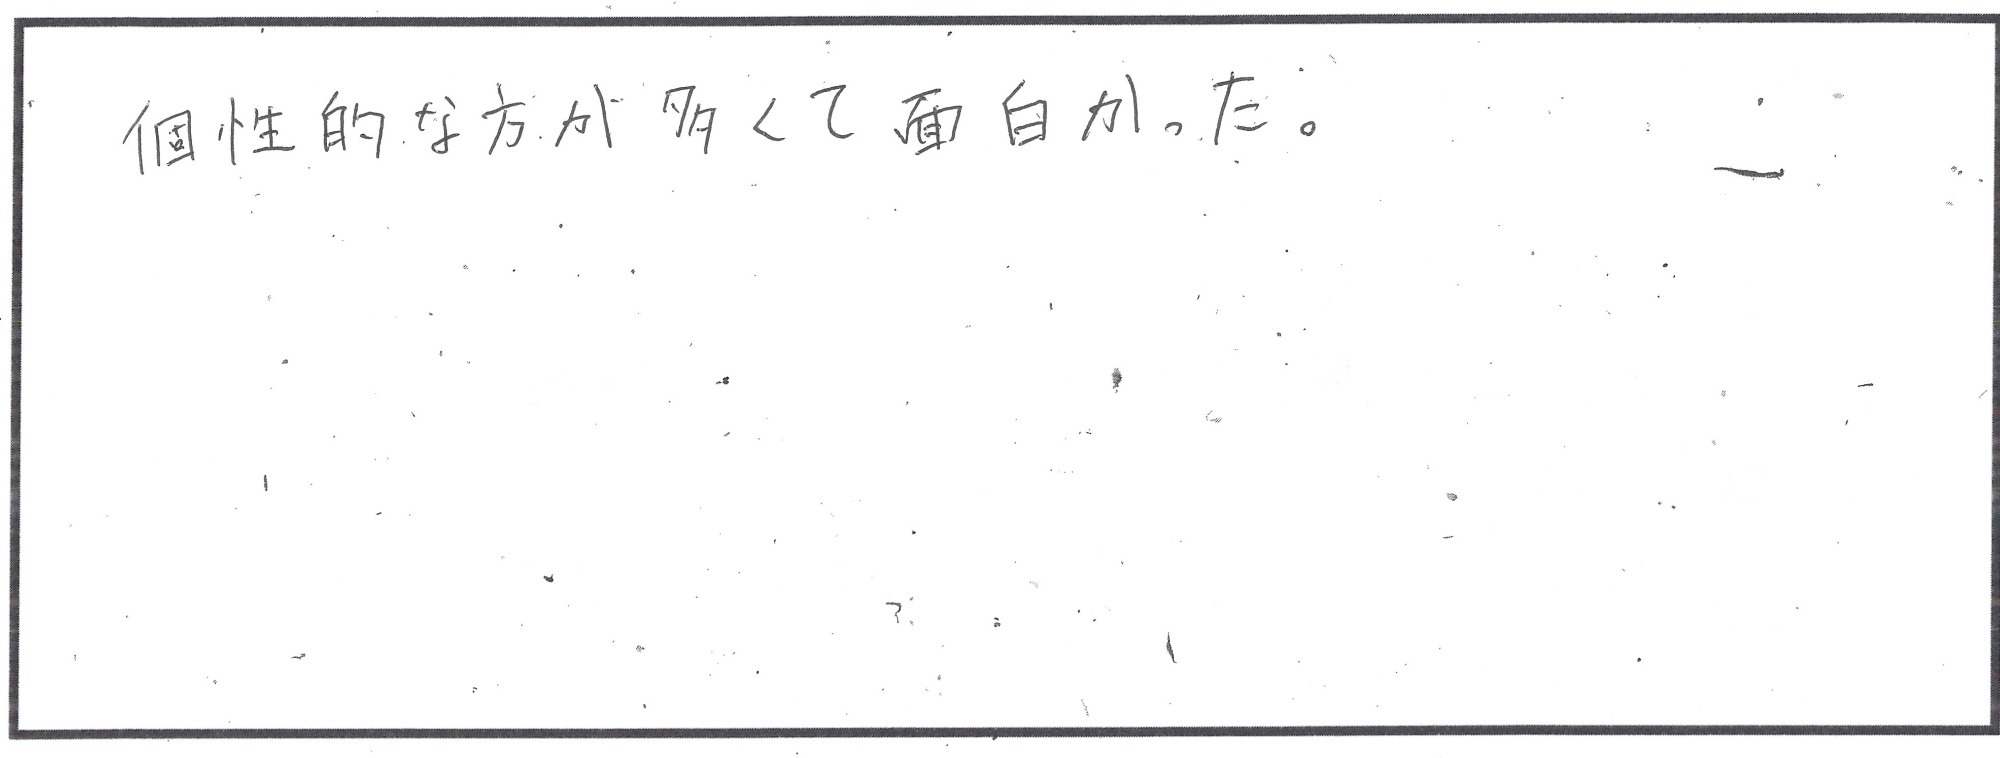 個性的な方が多くて面白かった。